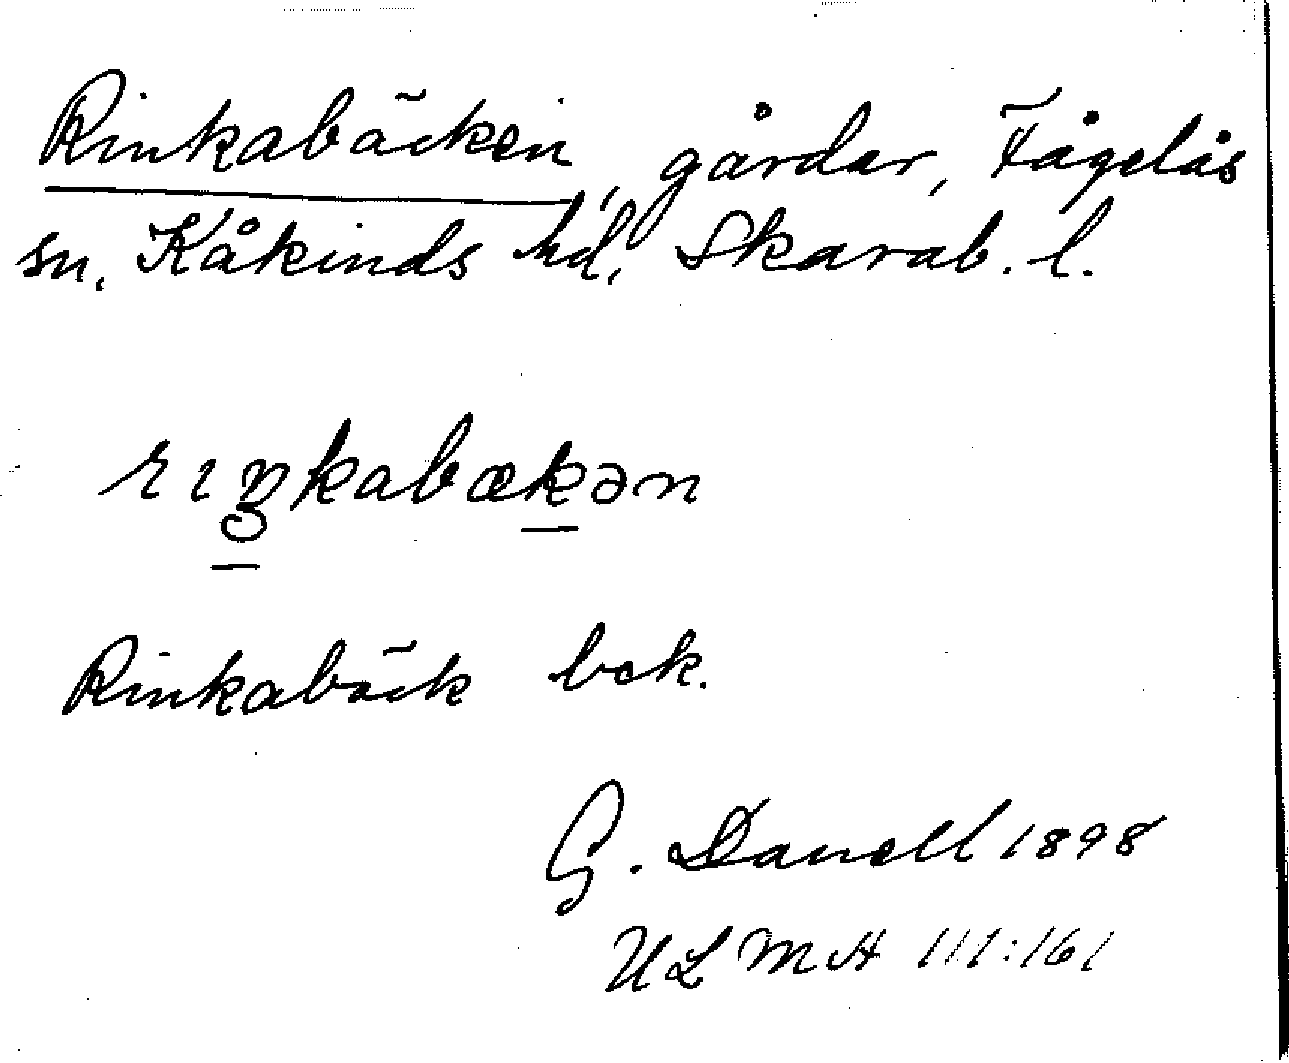 Rinkabäcken, gårdar, Fågelås
sn, Kåkinds hd, Skarab. l.
rıŋkabækən
Rinkabäck bek.
G. Danell 1898
ULMA 111:161